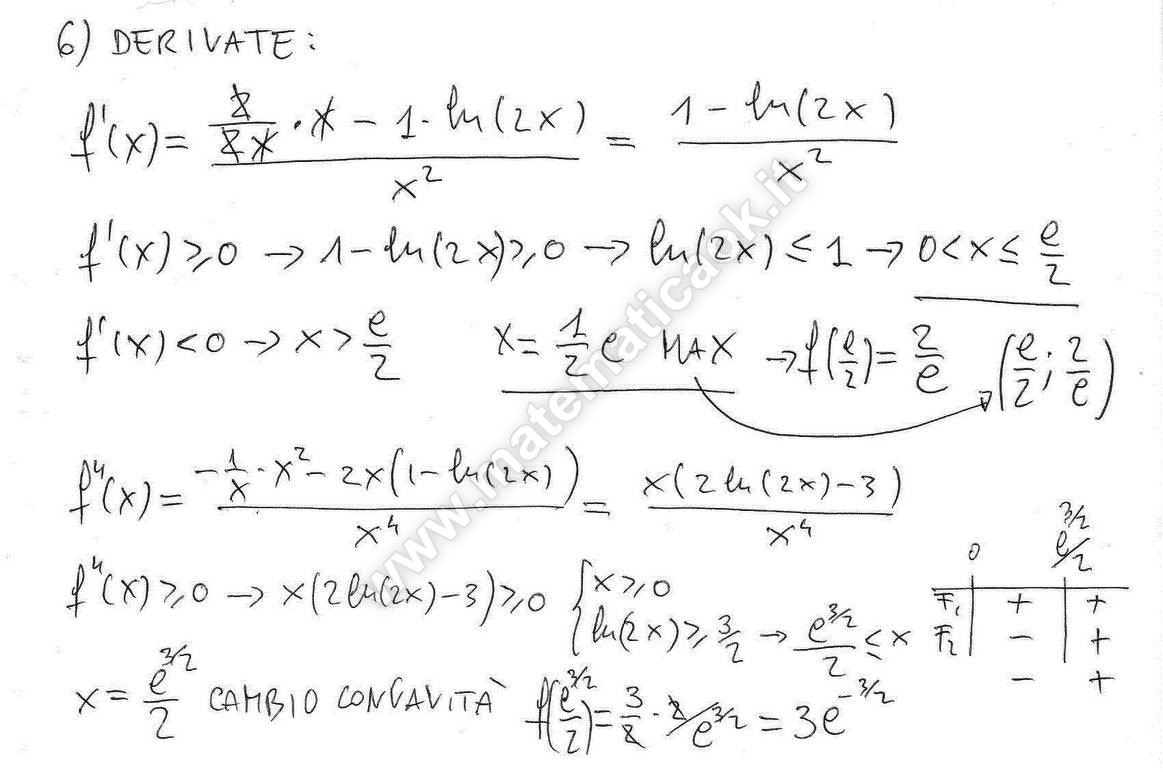 6) DERIVATE:
f'(x) = (2/2x · x − 1 · ln(2x)) / x² = (1 − ln(2x)) / x²
f'(x) ≥ 0 → 1 − ln(2x) ≥ 0 → ln(2x) ≤ 1 → 0 < x ≤ e/2
f'(x) < 0 → x > e/2   x = 1/2 e MAX → f(e/2) = 2/e (e/2 ; 2/e)
f"(x) = (−1/x · x² − 2x(1 − ln(2x))) / x⁴ = x(2 ln(2x) − 3) / x⁴
f"(x) ≥ 0 → x(2 ln(2x) − 3) ≥ 0 { x ≥ 0
ln(2x) ≥ 3/2 → e^(3/2)/2 ≤ x
0 e^(3/2)/2
F₁ + +
F₂ − +
− +
x = e^(3/2)/2 CAMBIO CONCAVITÀ f(e^(3/2)/2) = 3/2 · 2/e^(3/2) = 3e^(−3/2)
www.matematicaok.it